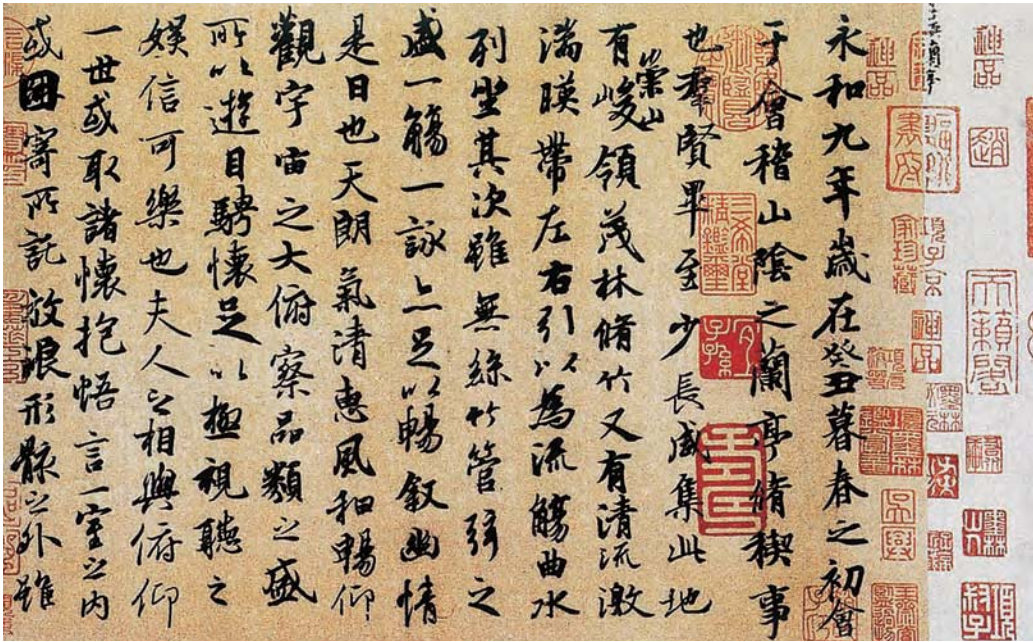 永和九年歲在癸丑暮春之初會
于會稽山陰之蘭亭脩稧事
也羣賢畢至少長咸集此地
有崇山峻領茂林脩竹又有清流激
湍暎帶左右引以為流觴曲水
列坐其次雖無絲竹管弦之
盛一觴一詠亦足以暢敘幽情
是日也天朗氣清惠風和暢仰
觀宇宙之大俯察品類之盛
所以遊目騁懷足以極視聽之
娛信可樂也夫人之相與俯仰
一世或取諸懷抱悟言一室之內
或因寄所託放浪形骸之外雖
神品
天籟閣
項子京家珍藏
神品
神品